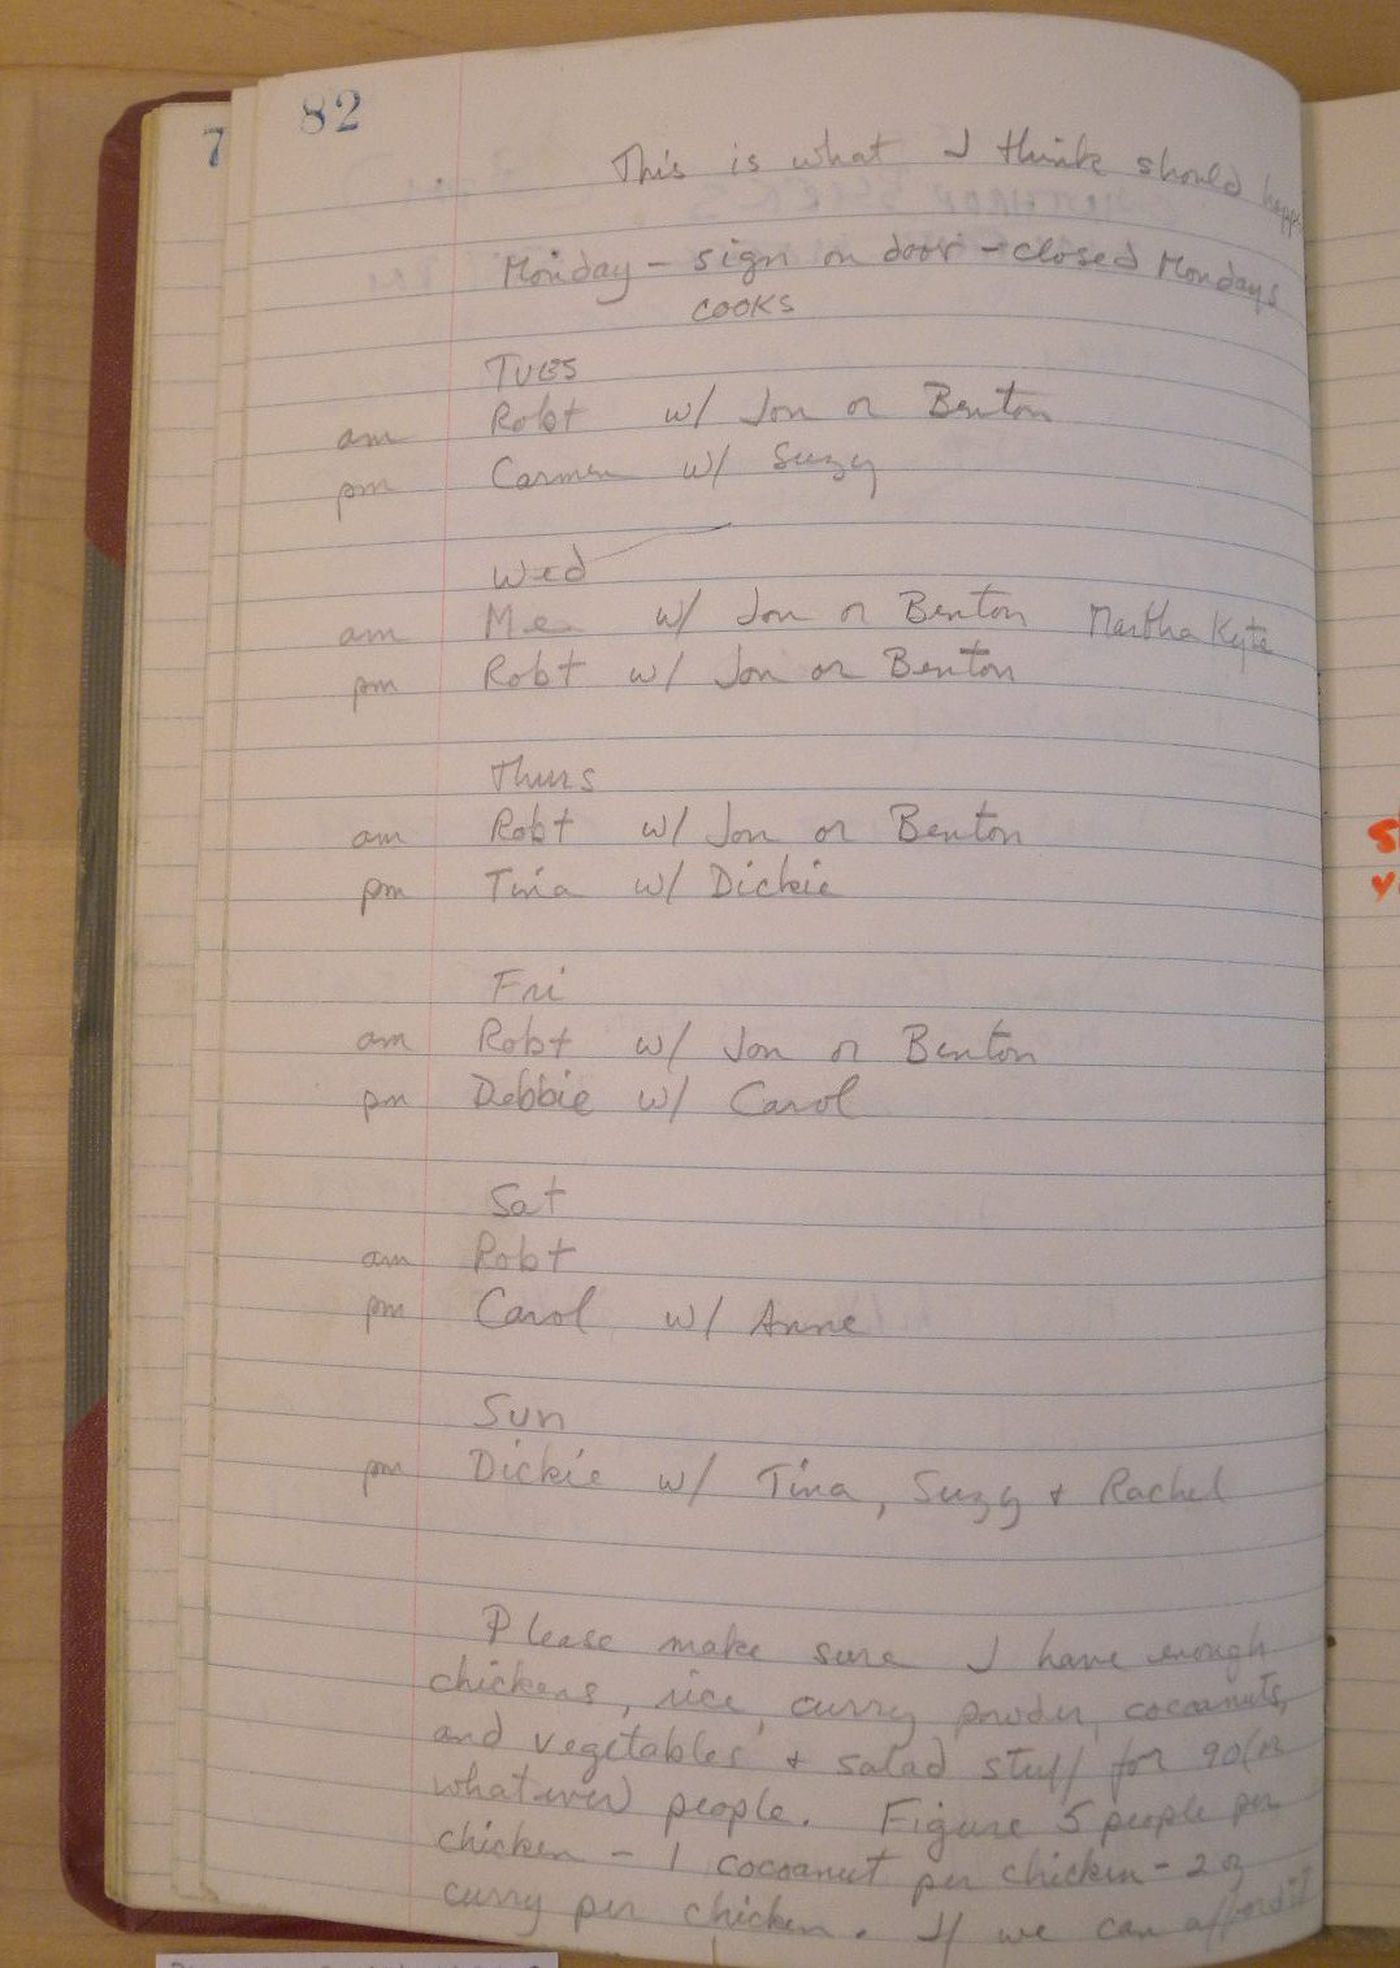 7
82
This is what I think should
Monday - sign on door - closed Mondays
cooks
TUES
am Robt w/ Jon or Benton
pm Carmen w/ Suzy
Wed
am Me w/ Jon or Benton Martha Kyte
pm Robt w/ Jon or Benton
Thurs
am Robt w/ Jon or Benton
pm Tina w/ Dickie
Fri
am Robt w/ Jon or Benton
pm Debbie w/ Carol
Sat
am Robt
pm Carol w/ Anne
Sun
pm Dickie w/ Tina, Suzy + Rachel
Please make sure I have enough
chickens, rice, curry powder, cocoanuts,
and vegetables + salad stuff for 90 (or
whatever) people. Figure 5 people per
chicken - 1 cocoanut per chicken - 2 oz
curry per chicken. If we can afford it